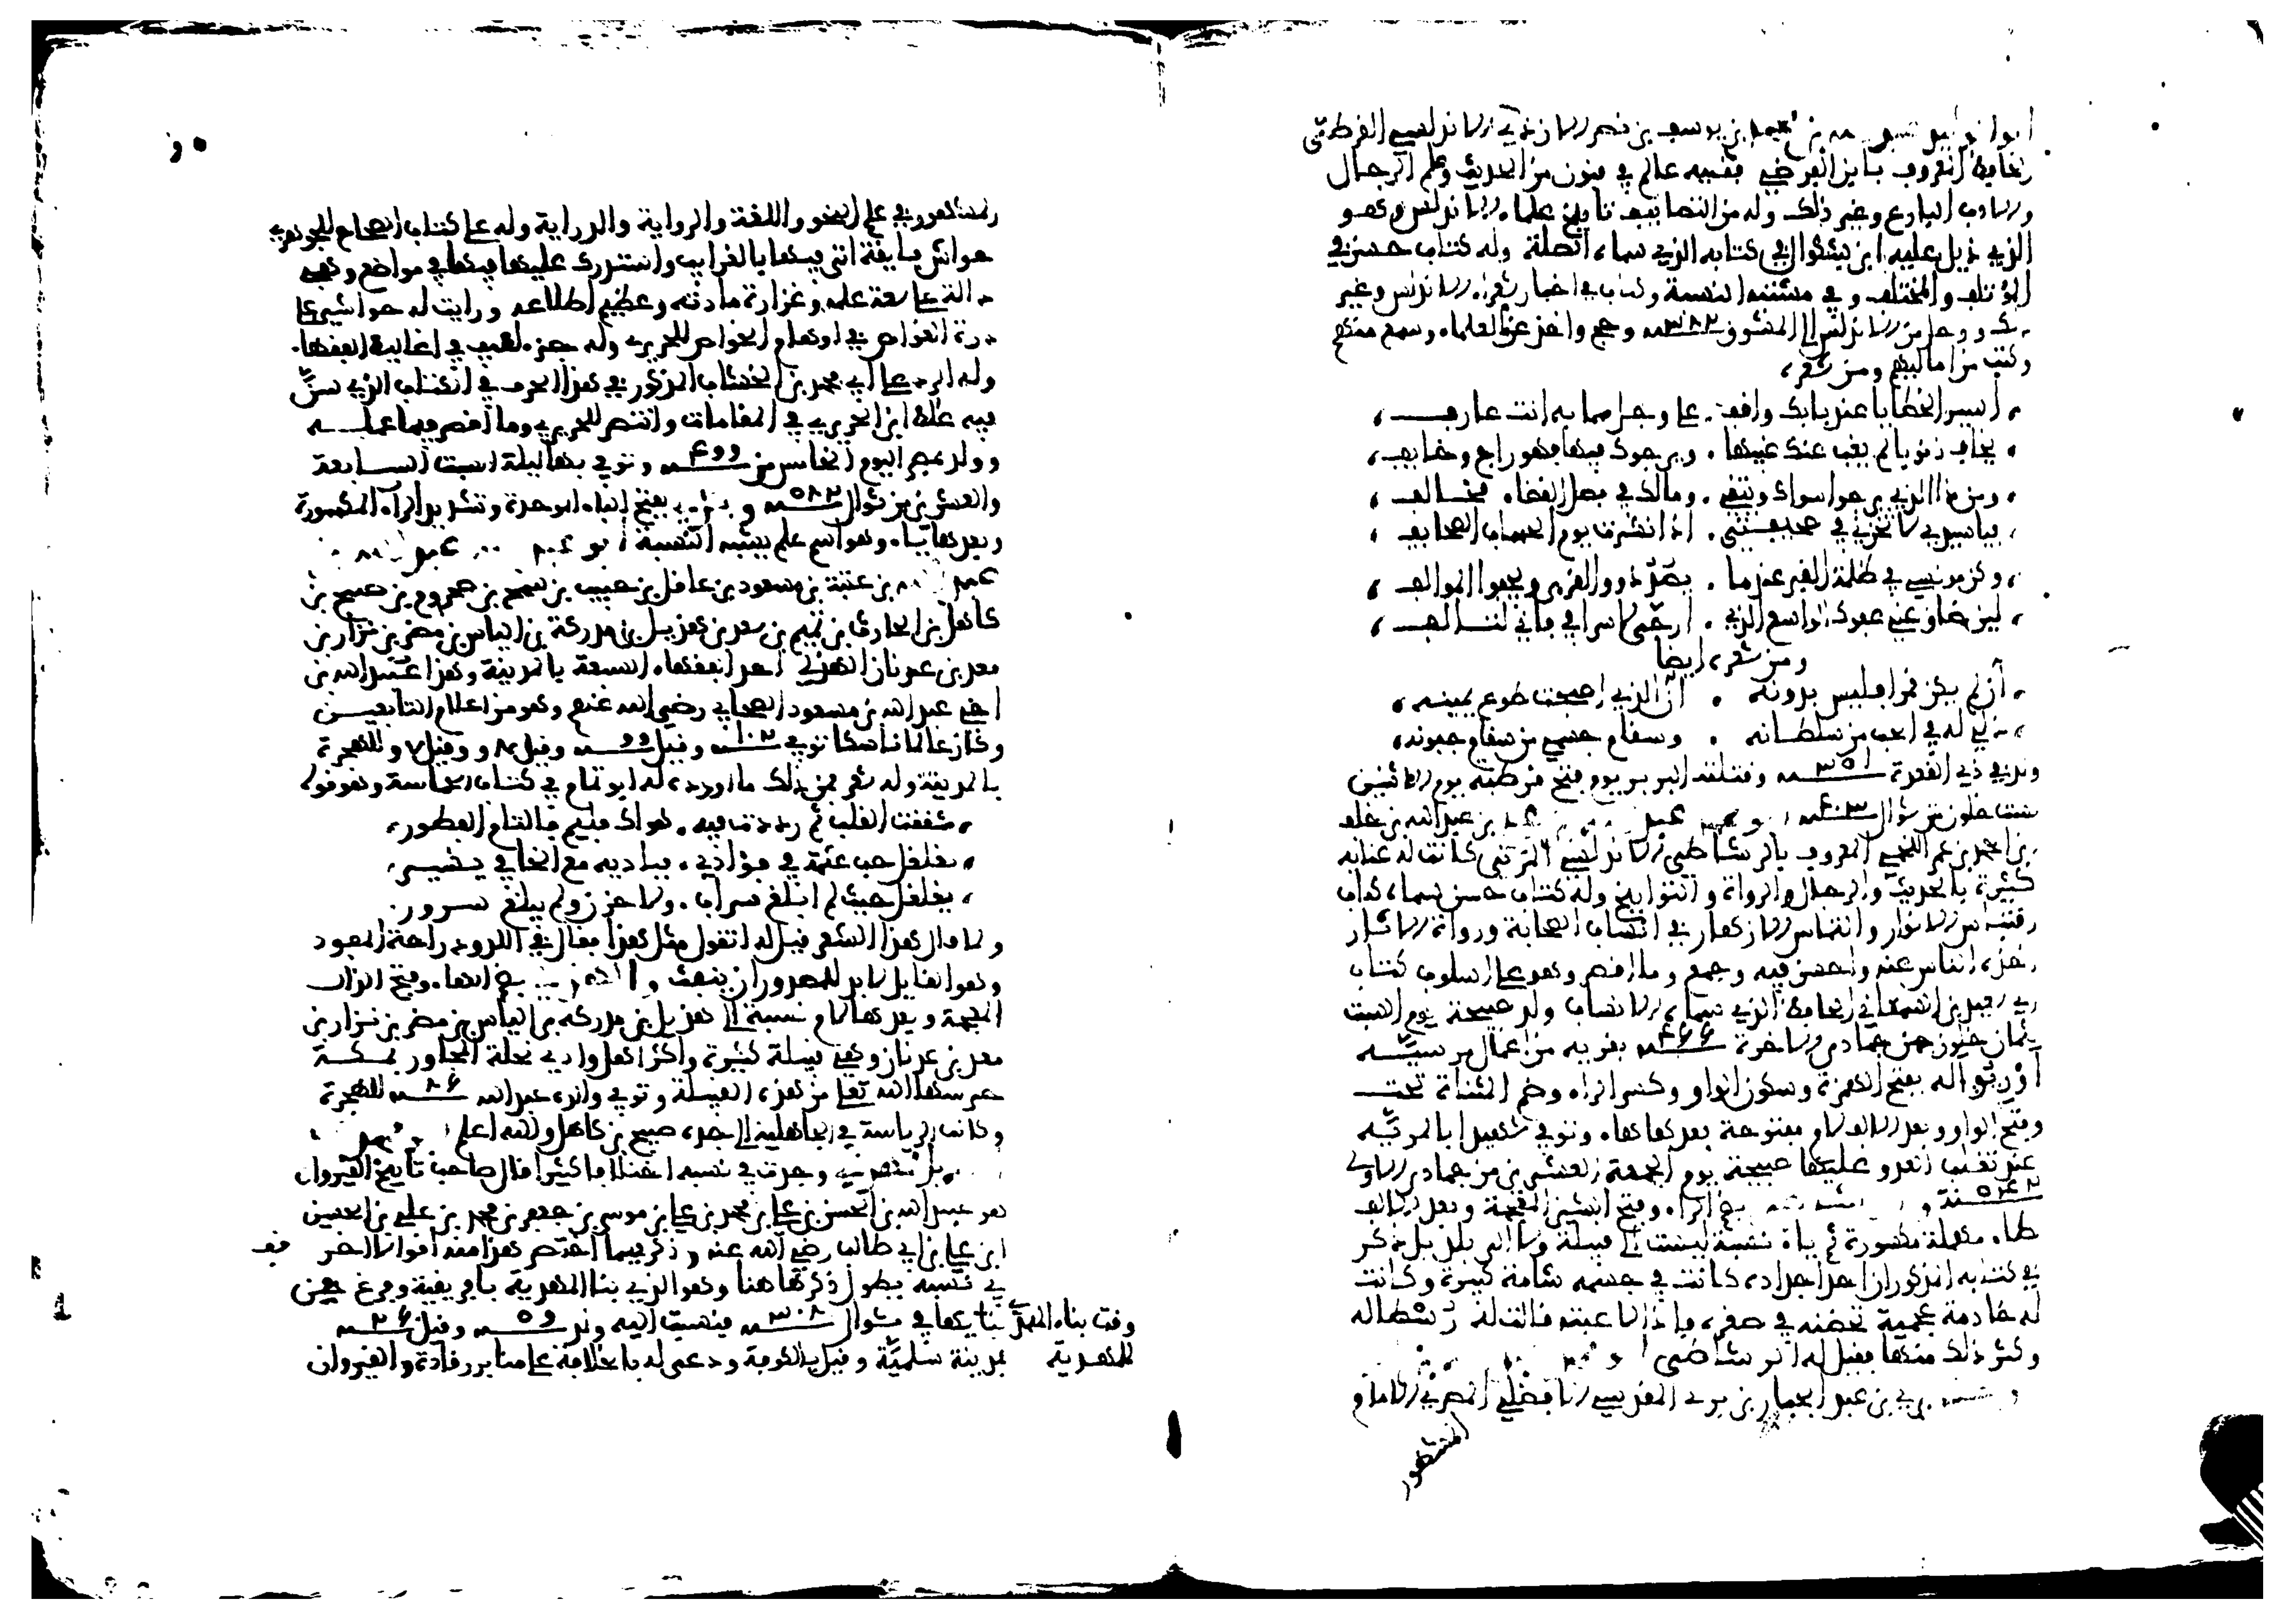 ابو الوليد عبد الله بن محمد بن يوسف بن نصر الازدي الاندلسي القرطبي
الحافظ المعروف بابن الفرضي فقيه عالم في فنون من الحديث وعلم الرجال
والادب البارع وغير ذلك وله من التصانيف تاريخ علماء الاندلس وهو
الذي ذيل عليه ابن بشكوال في كتابه الذي سماه الصلة وله كتاب حسن في
المؤتلف والمختلف وفي مشتبه النسبة وكتاب في اخبار شعراء الاندلس وغير
ذلك ورحل من الاندلس الى المشرق ٣٨٢ سنة وحج واخذ عن العلماء وسمع منهم
وكتب من اماليهم ومن شعره
اسير الخطايا عند بابك واقف . على وجل مما به انت عارف
يخاف ذنوبا لم يغب عنك غيبها . ويرجوك فيها فهو راج وخايف
ومن ذا الذي يرجو سواك ويتقي . ومالك في فصل القضاء مخالف
فيا سيدي لا تخزني في صحيفتي . اذا نشرت يوم الحساب الصحايف
وكن مونسي في ظلمة القبر عندما . يصد ذوو القربى ويجفوا الموالف
لين ضاق عني عفوك الواسع الذي . ارجى لاسرافي فاني لتالف
ومن شعره ايضا
ان لم يكن قمرا فليس بدونه . ان الذي اصبحت طوع يمينه
ذلي له في الحب من سلطانه . وسقام جسمي من سقام جفونه
ولد في ذي القعدة ٣٥١ سنة وقتلته البربر يوم فتح قرطبة يوم الاثنين
لست خلون من شوال ٤٠٣ سنة ابو محمد عبد بن عبد الله بن خلف
بن احمد بن عمر اللخمي المعروف بالرشاطي الاندلسي المريي كانت له عناية
كثيرة بالحديث والرجال والرواة والتواريخ وله كتاب حسن سماه كتاب
اقتباس الانوار والتماس الازهار في انساب الصحابة ورواة الاثار
اخذه الناس عنه واحسن فيه وجمع وما اقصر وهو على اسلوب كتاب
ابي سعد بن السمعاني الحافظ الذي سماه الانساب ولد صبيحة يوم السبت
لثمان خلون من جمادى الاخرة ٤٦٦ سنة بقرية من اعمال مرسية
اوريواله بفتح الهمزة وسكون الواو وكسر الراء وضم المثناة تحت
وفتح الواو وبعد الالف لام مفتوحة بعدها هاء. وتوفي شهيدا بالمرية
عند تغلب العدو عليها صبيحة يوم الجمعة العشرين من جمادى الاولى
٥٤٢ سنة و بضم الراء وفتح الشين المعجمة وبعد الالف
طاء مهملة مكسورة ثم ياء نسبة ليست الى قبيلة ولا الى بلد بل ذكر
في كتابه المذكور ان احد اجداده كانت في جسمه شامة كبيرة وكانت
له خادمة عجمية تحضنه في صغره فاذا لاعبته قالت له رشطاله
وكثر ذلك منها فقيل له الرشاطي
بري بن عبد الجبار بن بري المقدسي الاصل المصري الامام
المشهور
المشهور في علم النحو واللغة والرواية والدراية وله على كتاب الصحاح للجوهري
حواش فايقة اتى فيها بالغرايب واستدرك عليها فيها في مواضع وهي
دالة على سعة علمه وغزارة مادته وعظيم اطلاعه ورايت له حواشي على
درة الغواص في اوهام الخواص للحريري وله جزء لطيف في اغاليط الفقهاء.
وله الرد على ابي محمد بن الخشاب المذكور في هذا الحرف في الكتاب الذي بين
فيه غلط ابن الحريري في المقامات وانتصر للحريري وما اقصر فيما عمله
وولد بمصر اليوم الخامس من ٤٩٩ سنة وتوفي بها ليلة السبت السابعة
والعشرين من شوال ٥٨٢ سنة و بفتح الباء الموحدة وتشديد الراء المكسورة
وبعدها ياء. وهو اسم علم يشبه النسبة ابو
بن عتبة بن مسعود بن عاقل بن حبيب بن شمخ بن مخزوم بن صبح بن
كاهل بن الحارث بن تميم بن سعد بن هذيل بن مدركة بن الياس بن مضر بن نزار بن
معد بن عدنان الهذلي احد الفقهاء السبعة بالمدينة وهذا عبيد الله بن
اخي عبد الله بن مسعود الصحابي رضي الله عنهم وهو من اعلام التابعين
وكان عالما ناسكا توفي ١٠٢ سنة وقيل ٩٩ سنة وقيل ٩٨ وقيل ٩٧ للهجرة
بالمدينة وله شعر فمن ذلك ما اورده له ابو تمام في كتاب الحماسة وهو قوله
شققت القلب ثم رددت فيه . هواك فليم فالتام الفطور
تغلغل حب عثمة في فؤادي . فباديه مع الخافي يسير
تغلغل حيث لم يبلغ شراب . ولا حزن ولم يبلغ سرور
ولما قال هذا الشعر قيل له اتقول مثل هذا فقال في اللدود راحة المفود
وهو القايل لا بد للمصدور ان ينفث و بضم الهاء. وفتح الذال
المعجمة وبعدها لام نسبة الى هذيل بن مدركة بن الياس بن مضر بن نزار بن
معد بن عدنان وهي قبيلة كبيرة واكثر اهل وادي نخلة المجاور لمكة
حرسها الله تعالى من هذه القبيلة وتوفي والده عبد الله ٨٦ سنة للهجرة
وكانت الرياسة في الجاهلية الى جده صبح بن كاهل والله اعلم
وجدت في نسبه اختلافا كثيرا قال صاحب تاريخ القيروان
هو عبيد الله بن الحسن بن علي بن محمد بن علي بن موسى بن جعفر بن محمد بن علي بن الحسين
ابن علي بن ابي طالب رضي الله عنه وذكر فيما اختصر هذا منه اقوالا اخر
في نسبه يطول ذكرها هنا وهو الذي بنا المهدية بافريقية وفرغ من
بنايها في شوال ٣٠٨ سنة فنسبت اليه ولد ٢٥٩ سنة وقيل ٢٦٠ سنة
بمدينة سلمية وقيل بالكوفة ودعي له بالخلافة على منابر رقادة والقيروان
وقت بناء المهدي
للمهدية